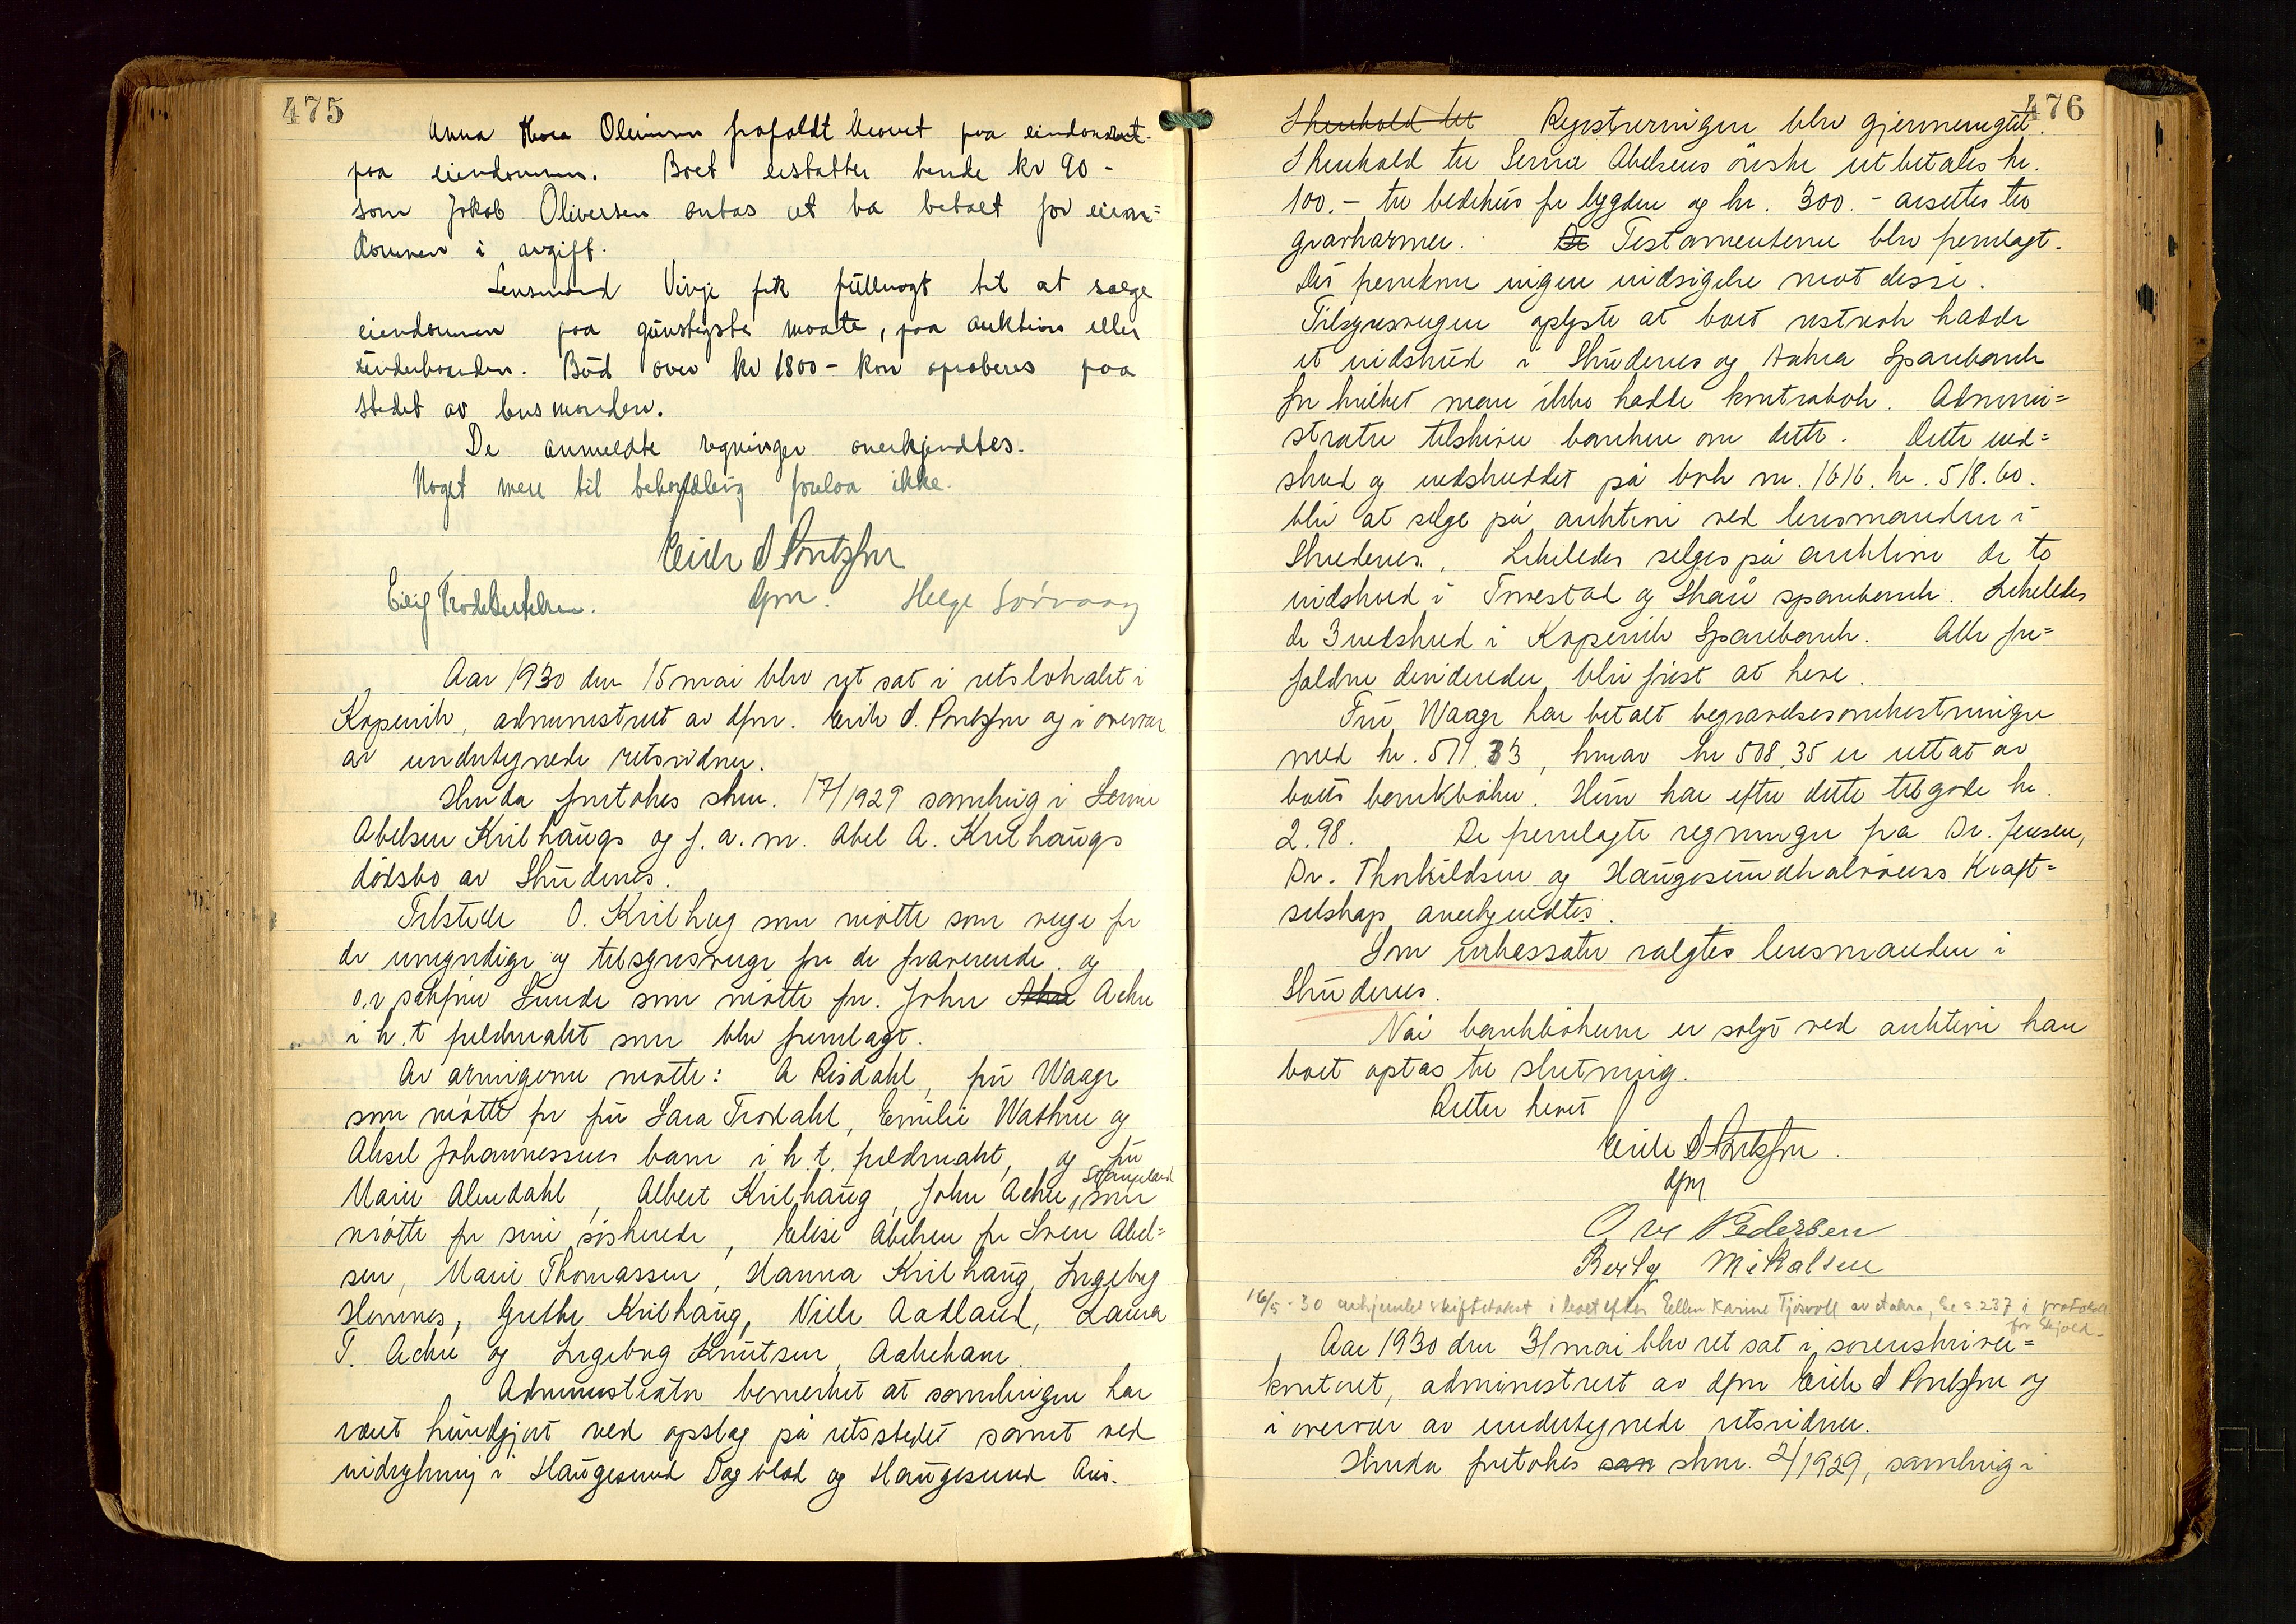 475
Anna Oleivinen frafaldt kravet paa
paa eiendommen. Boet erstatter hende kr 90 -
som Jokob Oliversen antas at ha betalt for eien=
dommen i avgift.
Lensmand Vinje fik füllmagt til at sælge
eiendommen paa günstigste maate, paa auktion eller
ünderhaanden. Büd over kr 1800 - kan aproberes paa
stedet av lensmanden.
De anmeldte regninger anerkjendtes.
Noget mere til behandling forelaa ikke.
Eirik d Pontoppidan
dfm. Helge Sørvaag
Aar 1930 den 15 mai blev ret sat i retslokalet i
Kopervik, administrert av dfm. Eirik d. og i overvær
av undertegnede retsvidner.
Hvorda foretokes skm. 17/1929 samling i Serine
Abelsen Krilhaugs og f. a. m. Abel A. Krilhaugs
dødsbo av Skudenes.
Tilstede O. Krilhaug som møtte som verge for
de umyndige og tilsynsverge for de fraværende og
o.r sakfører Lunde som møtte for John Aekre
i h. t fuldmakt som blev fremlagt.
Av arvingerne møtte: A Risdahl, frü Waage
som møtte for frü Sara Trodahl, Emilie Wathne og
Aksel Johannessens barn i h. t. fuldmakt, og frü
Marie Almdahl, Albert Krilhaug, John Aekre, Stangeland som
møtte for sine søskende, Elise Abelsen for Sven Abel=
sen, Marie Thomassen, Hanna Krilhaug, Ingeborg
Hemnes, Grethe Krilhaug, Niels Aadland, Laura
T. Aekre og Ingeborg Knutsen, Aakrehavn.
Administrator bemerket at samlingen har
været kundgjort ved opslag på retsstedet samt ved
inidrykning i Haugesund Dagblad og Haugesund Avis.
476
I henhold til Registreringen blev gjennemgåt.
I henhold til Serine Abelsens ønske utbetales kr.
100.- til bedehus for bygden og kr. 300.- avsettes til
gravharmer. De Testamenterne blev fremlagt.
Der fremkom ingen indsigelse mot disse.
Tilsynsvergen oplyste at boet ustrak hadde
et indskud i Skudenes og Aakra Sparebank
for hvilket man ikke hadde kontrabok. Admini=
strator tilskriver banken om dette. Dette ind=
skud og indskuddet på bok nr. 1616. kr. 518.60.
blir at selge på auktion ved lensmanden i
Skudenes. Likeledes selges på auktion de to
indskud i Torvestad og Skåre sparebank. Likeledes
de 3 indskud i Kopervik Sparebank. Alle for=
faldne dividender blir først at heve.
Frü Waage har betalt begravelsesomkostninger
med kr. 511.33, hvorav kr 508,35 er uttat av
boets bankbøker. Hun har efter dette tilgode kr.
2.98. De fremlagte regninger fra Dr. Jensen,
Dr. Thorkildsen og Haugesundhalvøens Kraft=
selskap anerkjendtes.
Som inkassator valgtes lensmanden i
Skudenes.
Når bankbøkerne er solgt ved auktion kan
boet optas til slutning.
Retten hevet
Eirik d Pontoppidan.
dfm
Ove Pedersen
Mikalsen
16/5 - 30 avhjemlet skiftetakst i boet efter Ellen Karine Tjøsvoll av Aakra, se s. 237 i protokoll
for Skjold.
Aar 1930 den 31 mai blev ret sat i sorenskriver=
kontoret, administrert av dfm Eirik d og
i overvær av undertegnede retsvidner.
Hvorda foretokes san skm. 2/1929, samling i